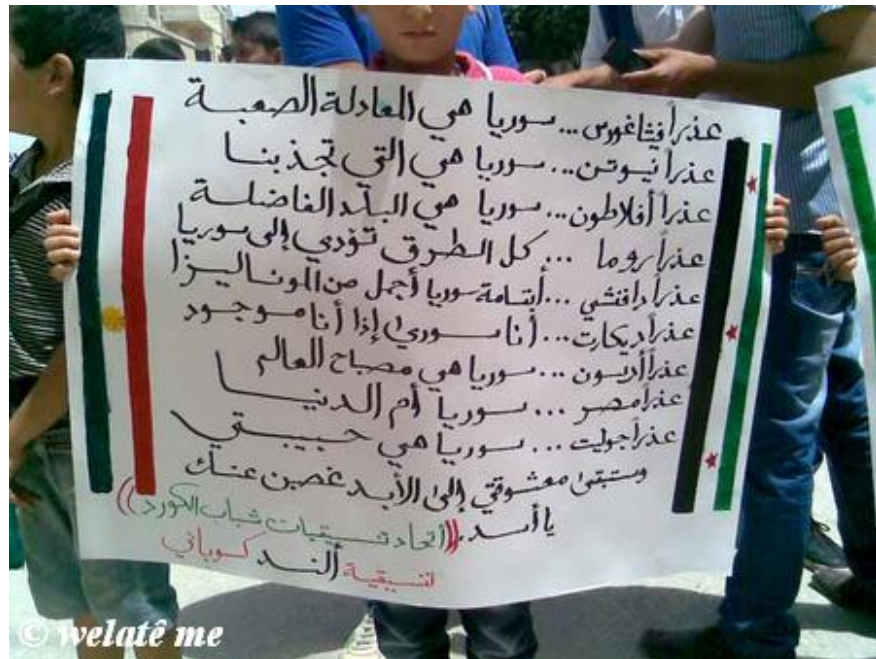 عذراً فيثاغورس... سوريا هي المعادلة الصعبة
عذراً نيوتن... سوريا هي التي تجذبنا
عذراً أفلاطون... سوريا هي البلد الفاضلة
عذراً روما ... كل الطرق تؤدي إلى سوريا
عذراً دافنشي ... أبتسامة سوريا أجمل من الموناليزا
عذراً ديكارت... أنا سوري إذا أنا موجود
عذراً أديسون... سوريا هي مصباح العالم
عذراً مصر ... سوريا أم الدنيا
عذراً جوليت... سوريا هي حبيبتي
وستبقى معشوقتي إلى الأبد غصبن عنك
يا أسد.
((اتحاد تنسيقيات شباب الكورد))
تنسيقية ألند كوباني
© welatê me